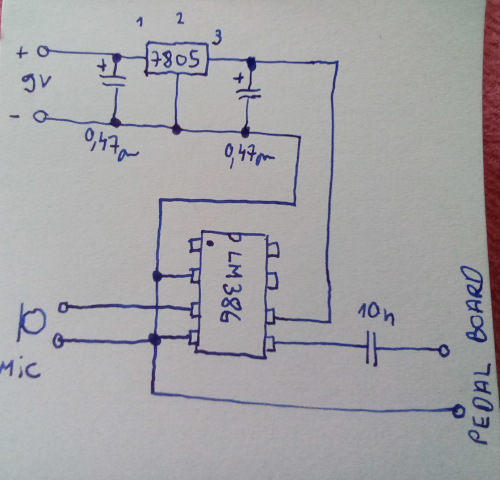 1 2 3
+ 7805
+ +
9V
-
0,47µ 0,47µ
LM386
10n
MiC
PEDAL BOARD